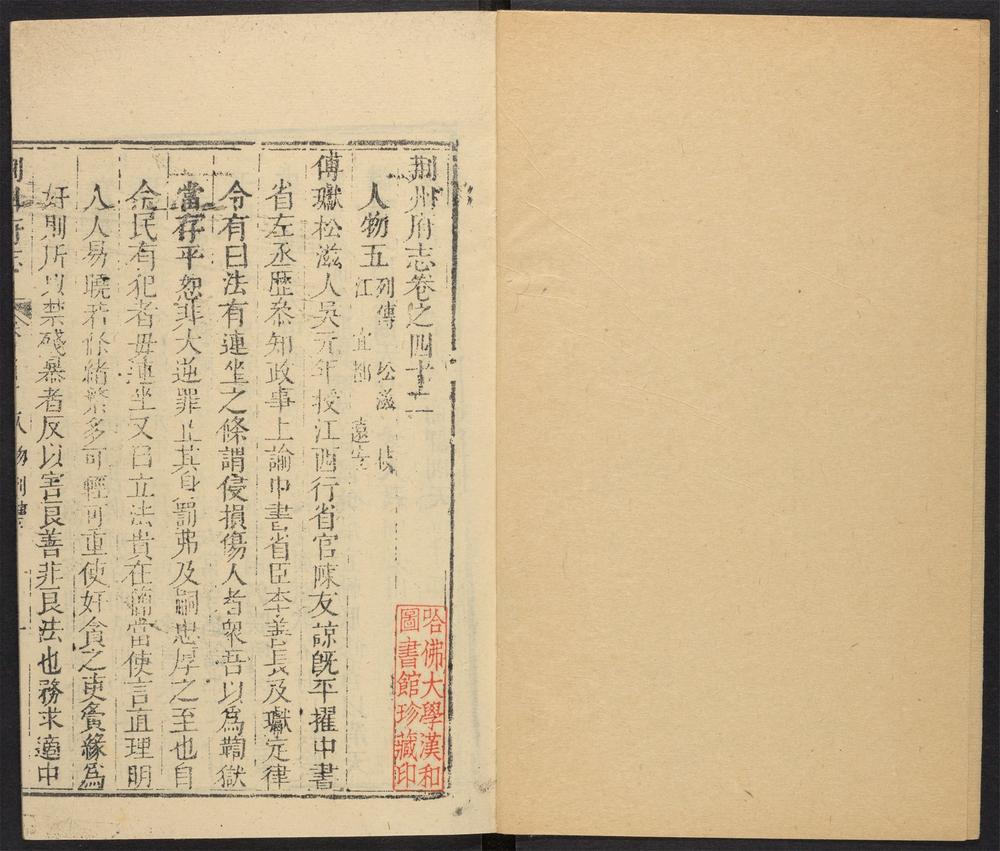 荆州府志卷之四十二
人物五 列傳 松滋 枝
江 宜都 遠安
傅瓛松滋人吳元年授江西行省官陳友諒旣平擢中書
省左丞歷叅知政事上諭中書省臣李善長及瓛定律
令有曰法有連坐之條謂侵損傷人者衆吾以爲鞫獄
當存平恕非大逆罪止其身罰弗及嗣忠厚之至也自
今民有犯者毋連坐又曰立法貴在簡當使言直理明
人人易曉若條緒繁多可輕可重使奸貪之吏夤緣爲
奸則所以禁殘暴者反以害良善非良法也務求適中
荆州府志
人物列傳
一
哈佛大學漢和
圖書館珍藏印